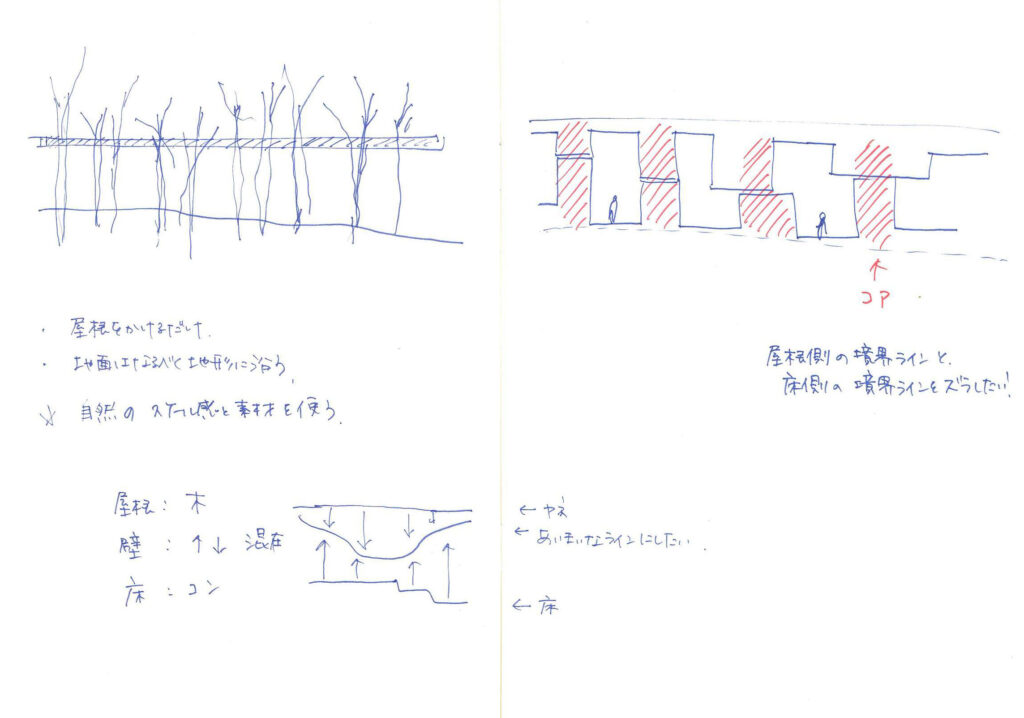 ・ 屋根をかけるだけ.
・ 地面はなるべく地形に沿う,
☆ 自然のスケール感と素材を使う.
屋根: 木
壁 : ↑↓ 混在
床 : コン
← ヤネ
← あいまいなラインにしたい.
← 床
↑
コア
屋根側の境界ラインと、
床側の境界ラインをズラしたい!